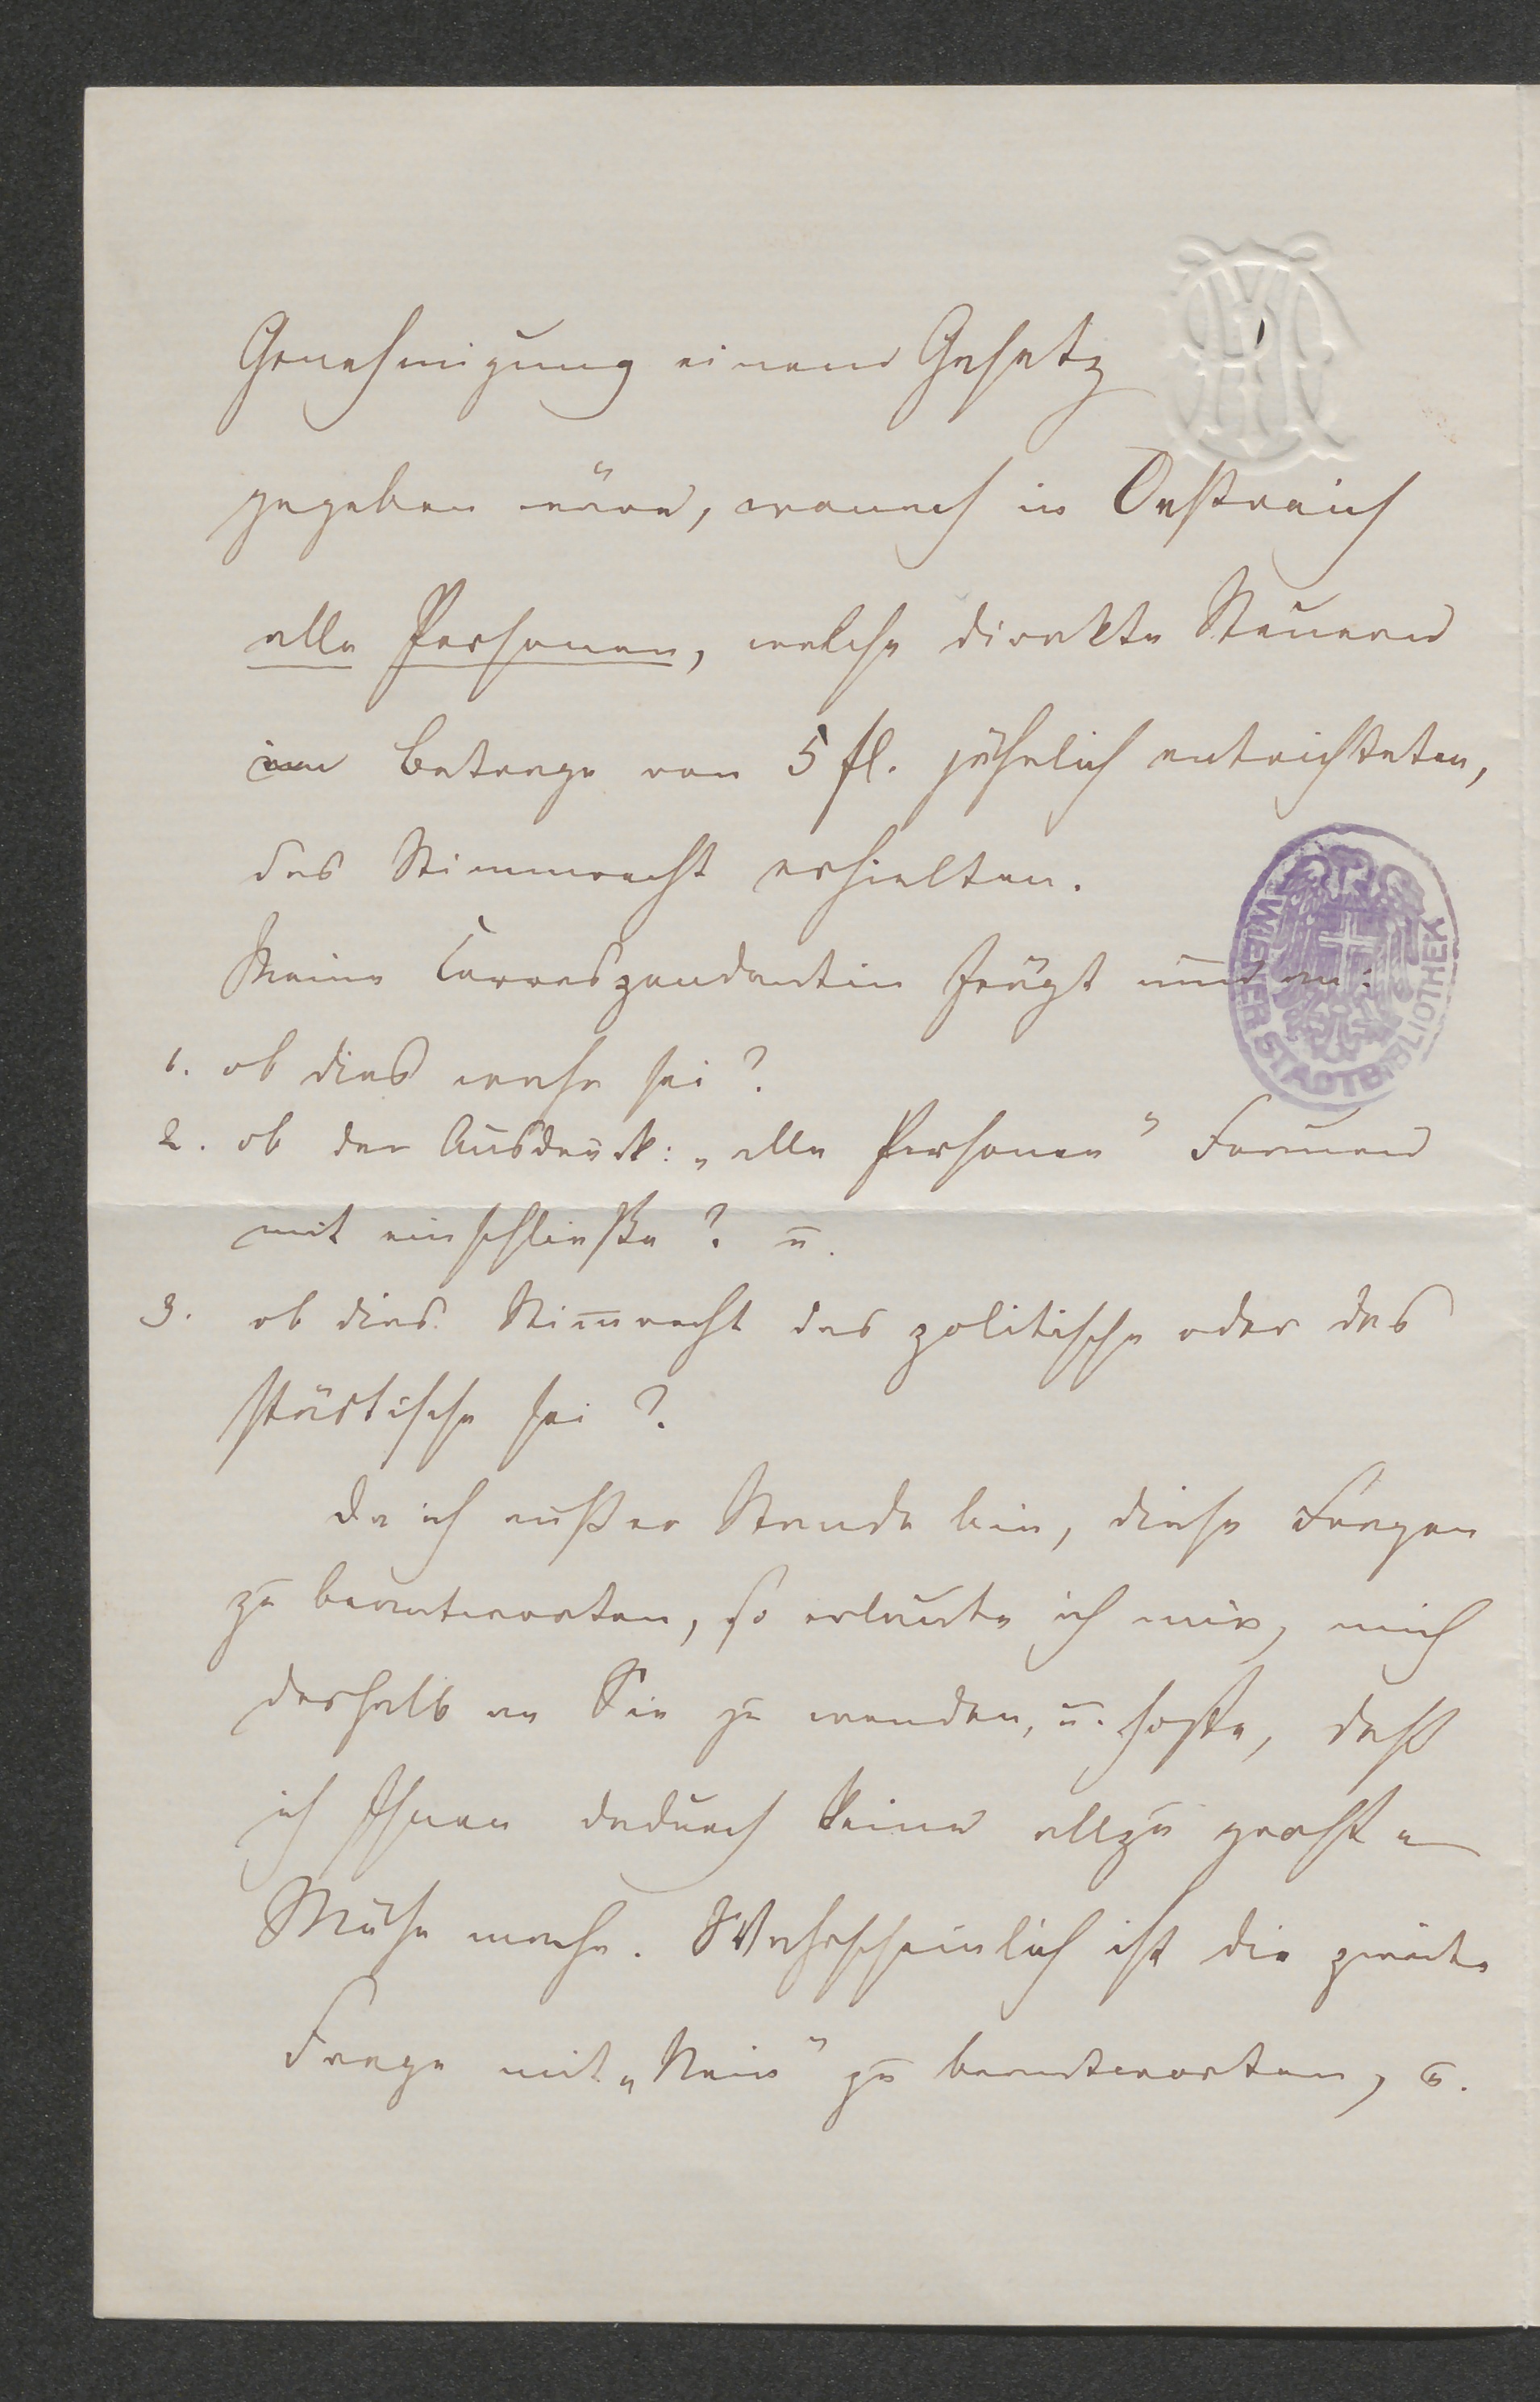 Genehmigung einem Gesetz
gegeben wäre, wonach in Oestreich
alle Personen, welche direkte Steuern
im Betrage von 5 fl. jährlich entrichteten,
das Stimmrecht erhielten.
Meine Correspondentin frägt nun an:
1. ob dies wahr sei?
2. ob der Ausdruck: „alle Personen" Frauen
mit einschließe? u.
3. ob dies Stim̅recht das politische oder das
städtische sei?
Da ich außer Stande bin, diese Fragen
zu beantworten, so erlaube ich mir, mich
deshalb an Sie zu wenden, u. hoffe, daß
ich Ihnen dadurch keine allzu große
Mühe mache. Wahrscheinlich ist die zweite
Frage mit „Nein" zu beantworten, u.
WIENER STADTBIBLIOTHEK